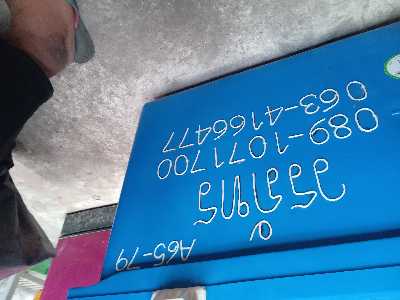 A65-79
วรภัทร
089-1071700
063-4166477